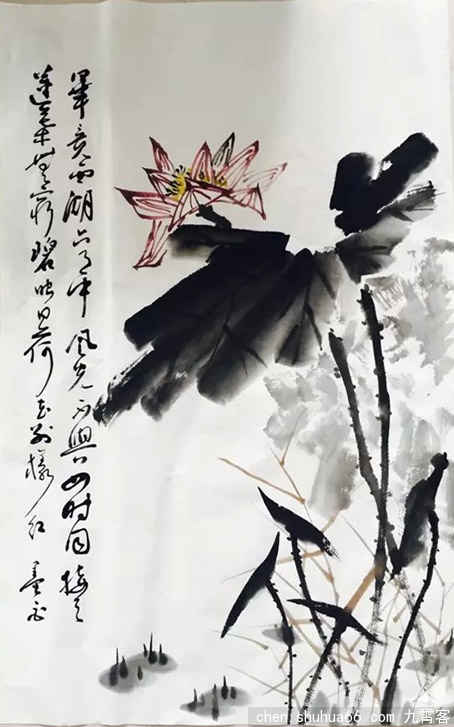 畢竟西湖六月中風光不與四時同接天
蓮葉無窮碧映日荷花別樣红
chen.shuhua66.com 九霄客